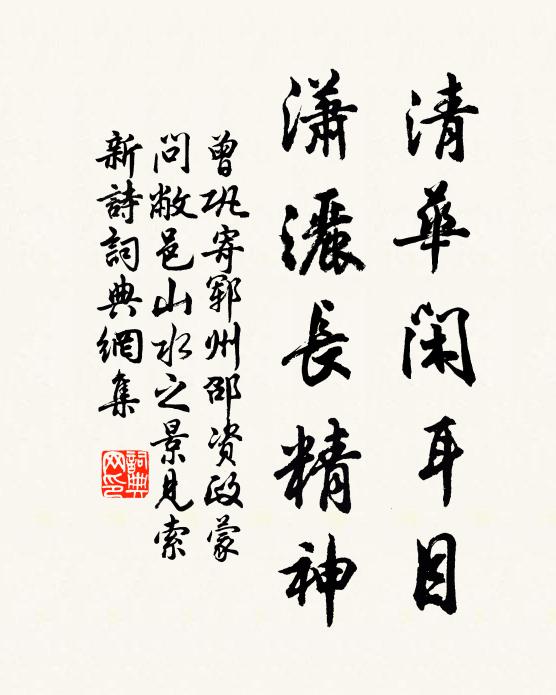 清華閑耳目
瀟灑長精神
曾巩寄鄆州邵資政蒙
問敝邑山水之景見索
新詩詞典網集
詞典
网印